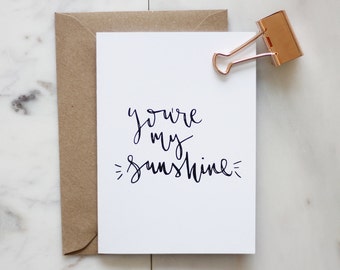 you're
my
sunshine